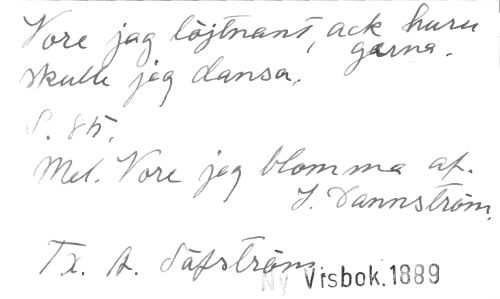 Vore jag löjtnant, ack huru gärna
skulle jag dansa.
S. 85.
Mel. Vore jag blomma af.
I. Dannström.
Tx. A. Säfström.
Ny Visbok. 1889